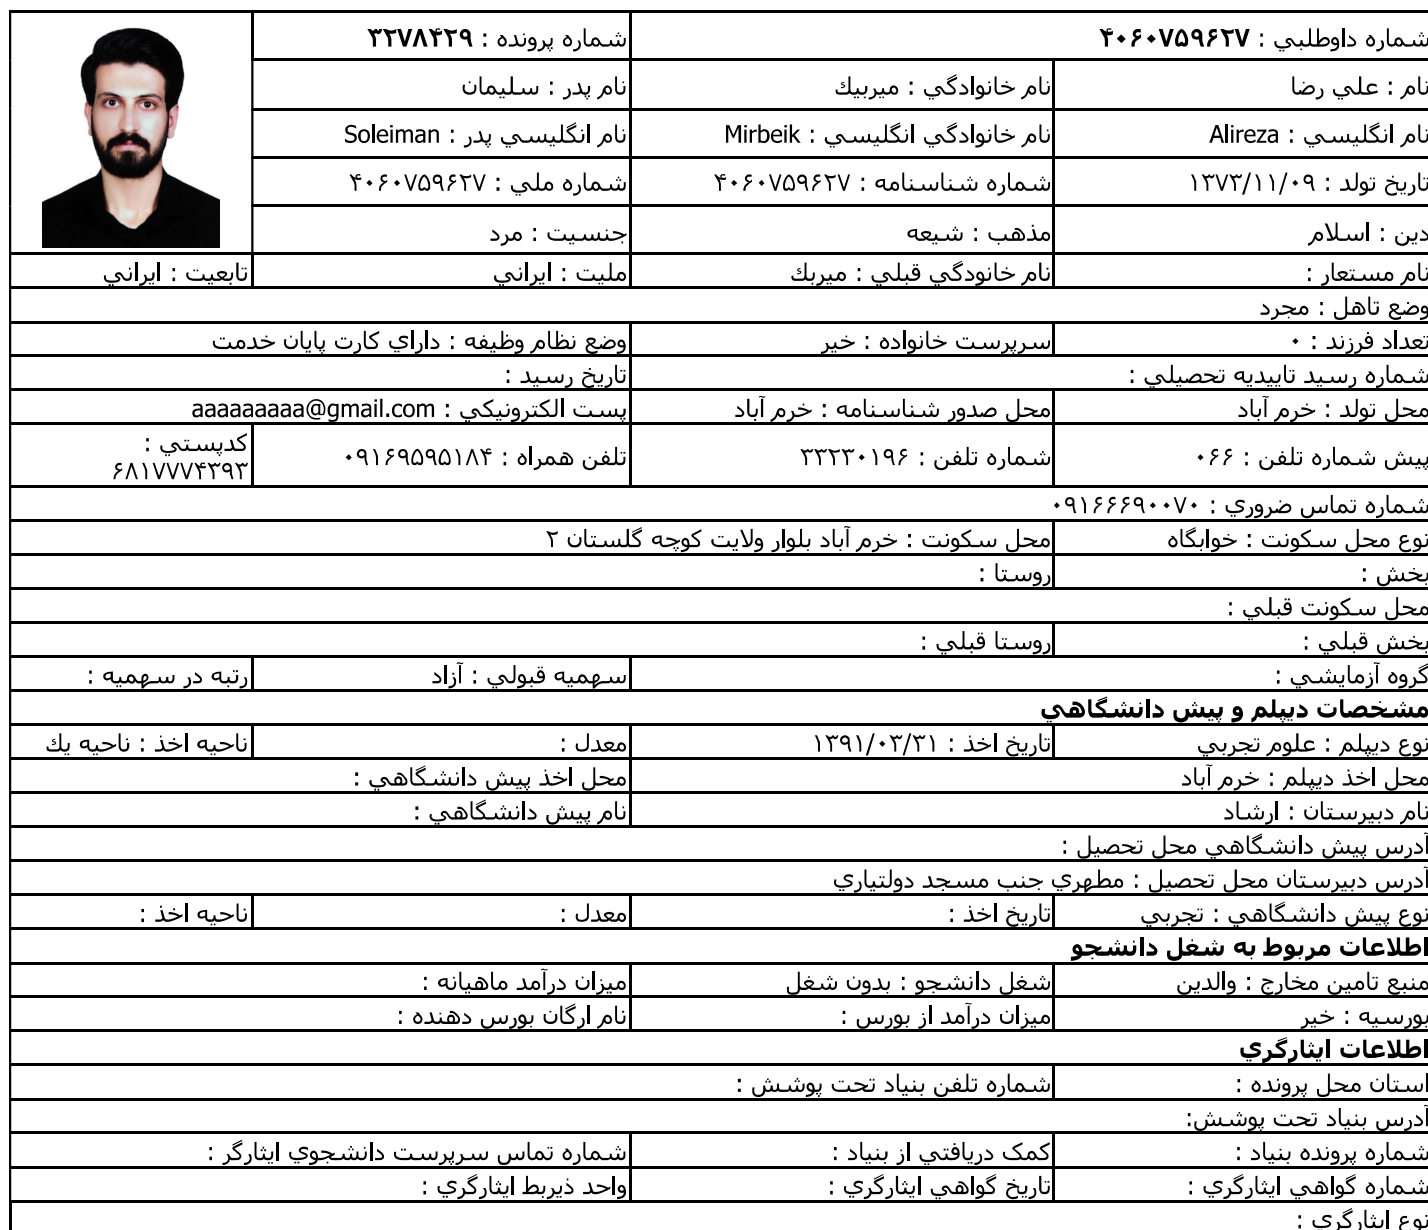 شماره داوطلبي : ۴۰۶۰۷۵۹۶۲۷ شماره پرونده : ۳۲۷۸۴۲۹
نام : علي رضا نام خانوادگي : ميربيك نام پدر : سليمان
نام انگليسي : Alireza نام خانوادگي انگليسي : Mirbeik نام انگليسي پدر : Soleiman
تاريخ تولد : ۱۳۷۳/۱۱/۰۹ شماره شناسنامه : ۴۰۶۰۷۵۹۶۲۷ شماره ملي : ۴۰۶۰۷۵۹۶۲۷
دين : اسلام مذهب : شيعه جنسيت : مرد
نام مستعار : نام خانودگي قبلي : ميربك مليت : ايراني تابعيت : ايراني
وضع تاهل : مجرد
تعداد فرزند : ۰ سرپرست خانواده : خير وضع نظام وظيفه : داراي كارت پايان خدمت
شماره رسيد تاييديه تحصيلي : تاريخ رسيد :
محل تولد : خرم آباد محل صدور شناسنامه : خرم آباد پست الكترونيكي : aaaaaaaaa@gmail.com
پيش شماره تلفن : ۰۶۶ شماره تلفن : ۳۳۲۳۰۱۹۶ تلفن همراه : ۰۹۱۶۹۵۹۵۱۸۴ كدپستي :
۶۸۱۷۷۷۴۳۹۳
شماره تماس ضروري : ۰۹۱۶۶۶۹۰۰۷۰
نوع محل سكونت : خوابگاه محل سكونت : خرم آباد بلوار ولايت كوچه گلستان ۲
بخش : روستا :
محل سكونت قبلي :
بخش قبلي : روستا قبلي :
گروه آزمايشي : سهميه قبولي : آزاد رتبه در سهميه :
مشخصات ديپلم و پيش دانشگاهي
نوع ديپلم : علوم تجربي تاريخ اخذ : ۱۳۹۱/۰۳/۳۱ معدل : ناحيه اخذ : ناحيه يك
محل اخذ ديپلم : خرم آباد محل اخذ پيش دانشگاهي :
نام دبيرستان : ارشاد نام پيش دانشگاهي :
آدرس پيش دانشگاهي محل تحصيل :
آدرس دبيرستان محل تحصيل : مطهري جنب مسجد دولتياري
نوع پيش دانشگاهي : تجربي تاريخ اخذ : معدل : ناحيه اخذ :
اطلاعات مربوط به شغل دانشجو
منبع تامين مخارج : والدين شغل دانشجو : بدون شغل ميزان درآمد ماهيانه :
بورسيه : خير ميزان درآمد از بورس : نام ارگان بورس دهنده :
اطلاعات ايثارگري
استان محل پرونده : شماره تلفن بنياد تحت پوشش :
آدرس بنياد تحت پوشش:
شماره پرونده بنياد : کمک دريافتي از بنياد : شماره تماس سرپرست دانشجوي ايثارگر :
شماره گواهي ايثارگري : تاريخ گواهي ايثارگري : واحد ذيربط ايثارگري :
نوع ايثارگري :